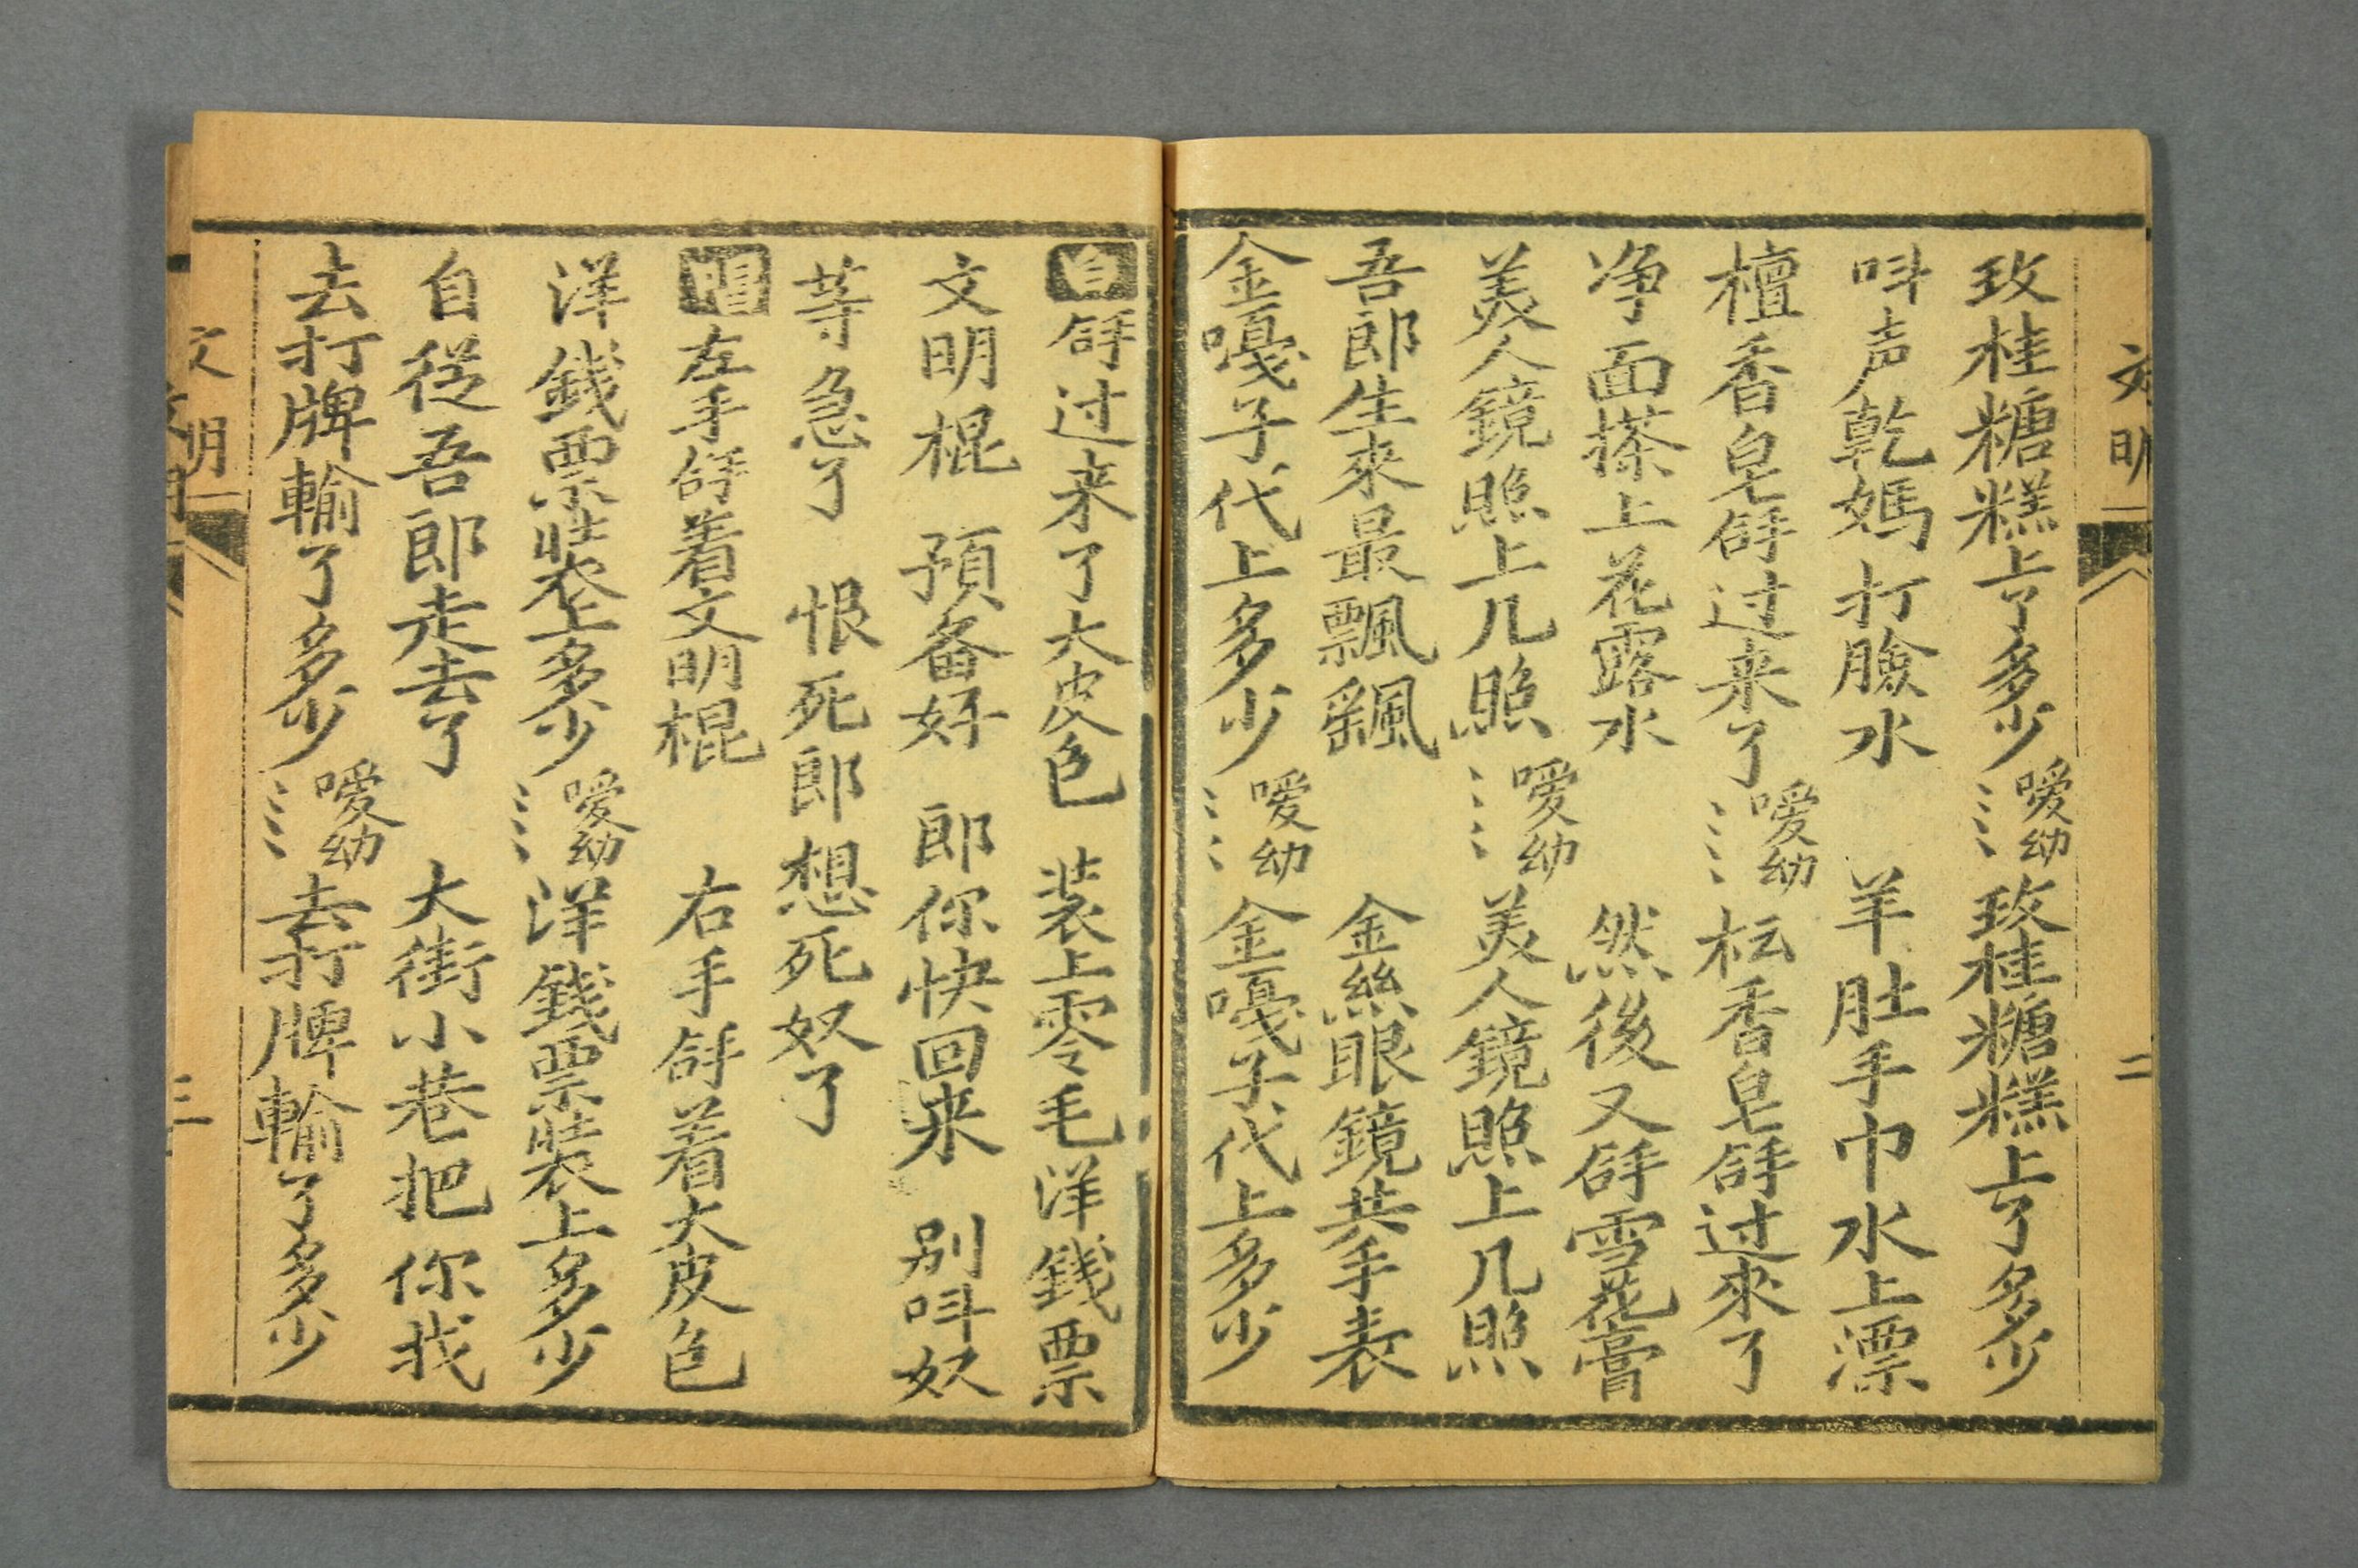 文明 二
玫桂糖糕上了多少 噯幼ミミ 玫桂糖糕上了多少
呌声乾媽打臉水 羊肚手巾水上漂
檀香皂𢪛过来了 噯幼ミミ 枟香皂𢪛过來了
净面搽上花露水 然後又𢪛雪花膏
美人鏡照上几照 噯幼ミミ 美人鏡照上几照
吾郎生來最飄飖 金絲眼鏡共手表
金嘎子代上多少 噯幼ミミ 金嘎子代上多少
白 𢪛过来了大皮包 装上零毛洋錢票
文明棍 預备好 郎你快回来 别呌奴
等急了 恨死郎想死奴了
唱 左手𢪛着文明棍 右手𢪛着大皮包
洋錢票装上多少 噯幼ミミ 洋錢票装上多少
自從吾郎走去了 大街小巷把你找
去打牌輸了多少 噯幼ミミ 去打牌輸了多少
文明 三